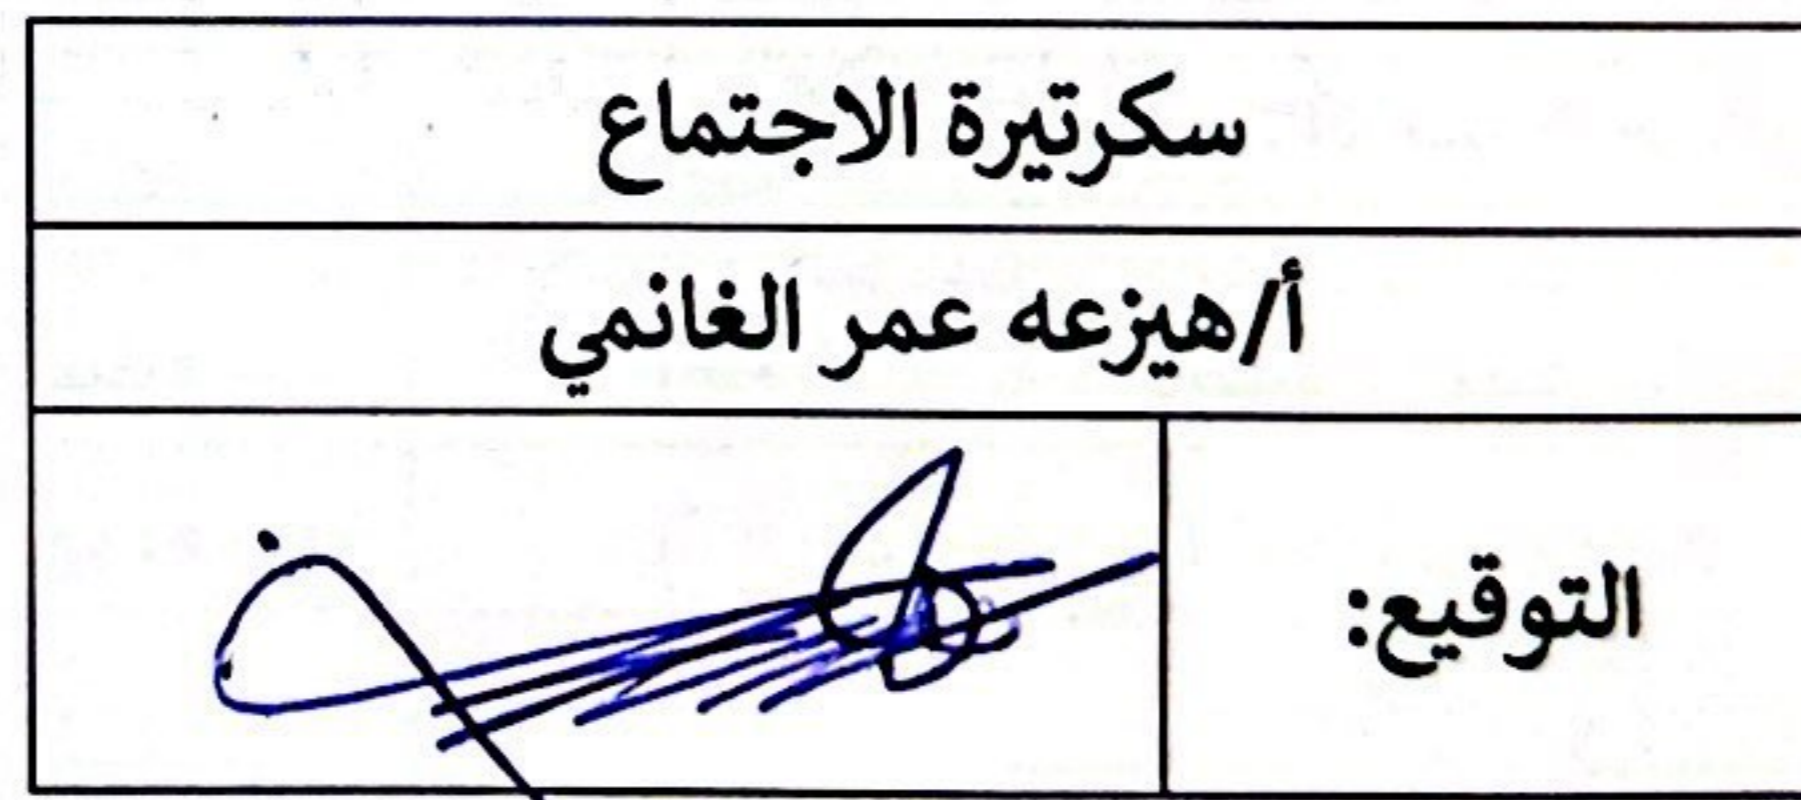 سكرتيرة الاجتماع
أ/هيزعه عمر الغانمي
التوقيع: